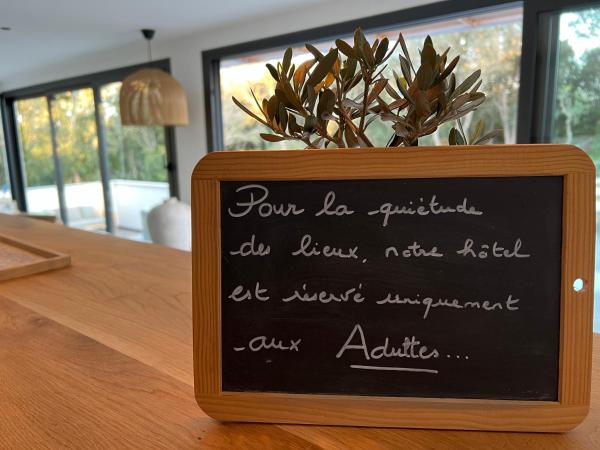 Pour la quiétude
des lieux, notre hôtel
est réservé uniquement
aux Adultes...